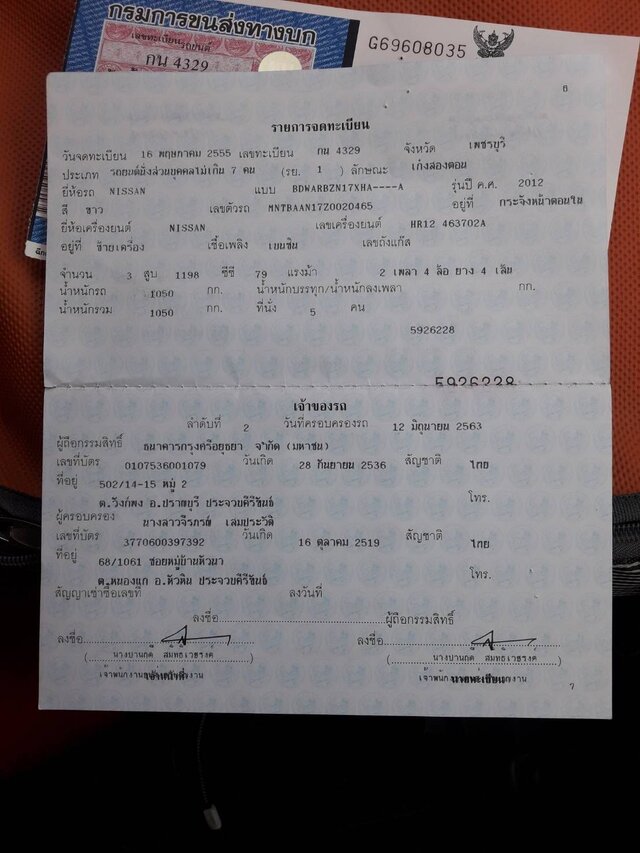 กรมการขนส่งทางบก
เลขทะเบียนรถยนต์
กน 4329
G69608035
6
รายการจดทะเบียน
วันจดทะเบียน 16 พฤษภาคม 2555 เลขทะเบียน กน 4329 จังหวัด เพชรบุรี
ประเภท รถยนต์นั่งส่วนบุคคลไม่เกิน 7 คน (รย. 1 ) ลักษณะ เก๋งสองตอน
ยี่ห้อรถ NISSAN แบบ BDWARBZN17XHA----A รุ่นปี ค.ศ. 2012
สี ขาว เลขตัวรถ MNTBAAN17Z0020465 อยู่ที่ กระจังหน้าตอนใน
ยี่ห้อเครื่องยนต์ NISSAN เลขเครื่องยนต์ HR12 463702A
อยู่ที่ ซ้ายเครื่อง เชื้อเพลิง เบนซิน เลขถังแก๊ส
จำนวน 3 สูบ 1198 ซีซี 79 แรงม้า 2 เพลา 4 ล้อ ยาง 4 เส้น
น้ำหนักรถ 1050 กก. น้ำหนักบรรทุก/น้ำหนักลงเพลา กก.
น้ำหนักรวม 1050 กก. ที่นั่ง 5 คน
5926228
5926228
เจ้าของรถ
ลำดับที่ 2 วันที่ครอบครองรถ 12 มิถุนายน 2563
ผู้ถือกรรมสิทธิ์ ธนาคารกรุงศรีอยุธยา จำกัด (มหาชน)
เลขที่บัตร 0107536001079 วันเกิด 28 กันยายน 2536 สัญชาติ ไทย
ที่อยู่ 502/14-15 หมู่ 2
ต.วังก์พง อ.ปราณบุรี ประจวบคีรีขันธ์ โทร.
ผู้ครอบครอง นางสาวจีราภรณ์
เลขที่บัตร 3770600397392 วันเกิด 16 ตุลาคม 2519 สัญชาติ ไทย
ที่อยู่ 68/1061 ซอยหมู่บ้านหัวนา
ต.หนองแก อ.หัวหิน ประจวบคีรีขันธ์ โทร.
สัญญาเช่าซื้อเลขที่ ลงวันที่
ลงชื่อ ผู้ถือกรรมสิทธิ์
ลงชื่อ ลงชื่อ
7